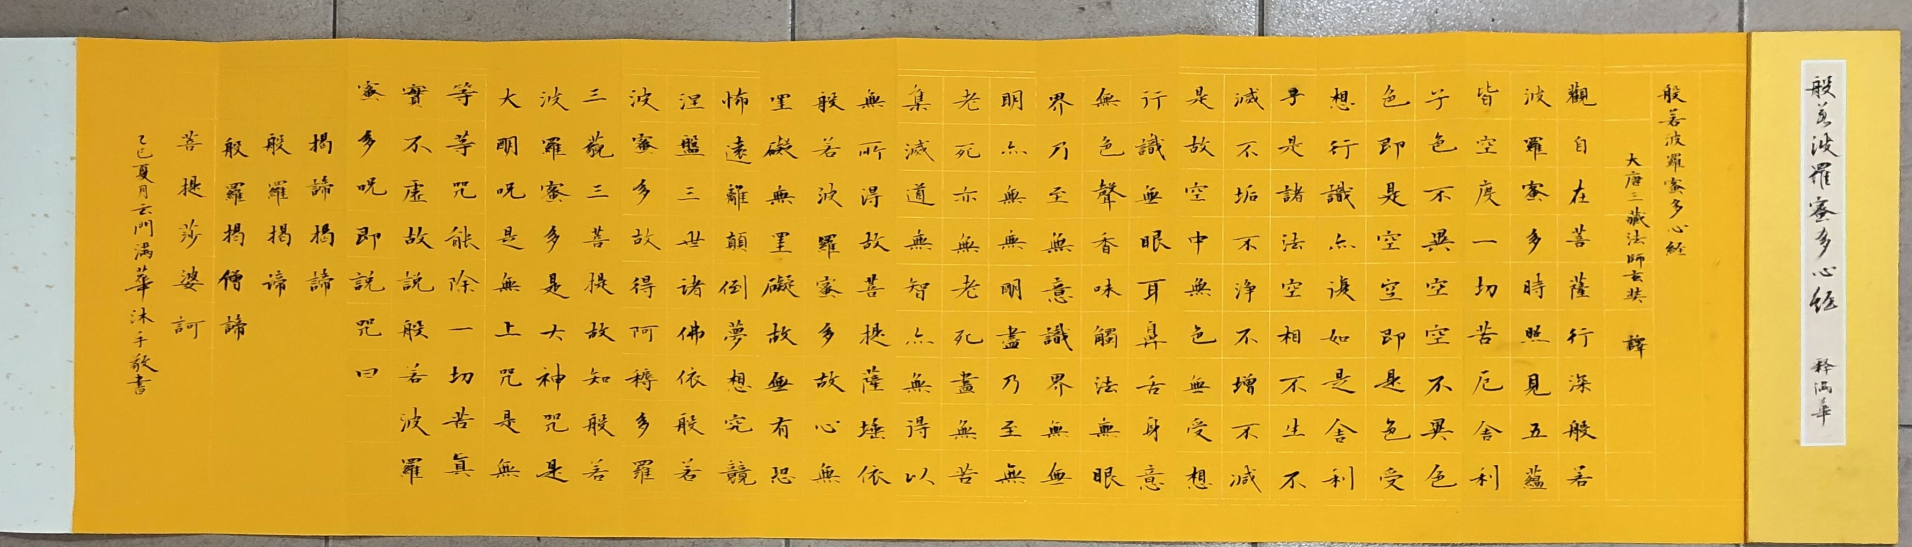 般若波羅蜜多心經
釋滿華
般若波羅蜜多心經
大唐三藏法師玄奘 譯
觀自在菩薩行深般若
波羅蜜多時照見五蘊
皆空度一切苦厄舍利
子色不異空空不異色
色即是空空即是色受
想行識亦復如是舍利
子是諸法空相不生不
滅不垢不淨不增不減
是故空中無色無受想
行識無眼耳鼻舌身意
無色聲香味觸法無眼
界乃至無意識界無無
明亦無無明盡乃至無
老死亦無老死盡無苦
集滅道無智亦無得以
無所得故菩提薩埵依
般若波羅蜜多故心無
罣礙無罣礙故無有恐
怖遠離顛倒夢想究競
涅盤三世諸佛依般若
波蜜多故得阿耨多羅
三藐三菩提故知般若
波羅蜜多是大神咒是
大明呪是無上咒是無
等等咒能除一切苦真
實不虛故説般若波羅
蜜多呪即説咒曰
揭諦揭諦
般羅揭諦
般羅揭僧諦
菩提莎婆訶
乙巳夏月云門滿華沐手敬書